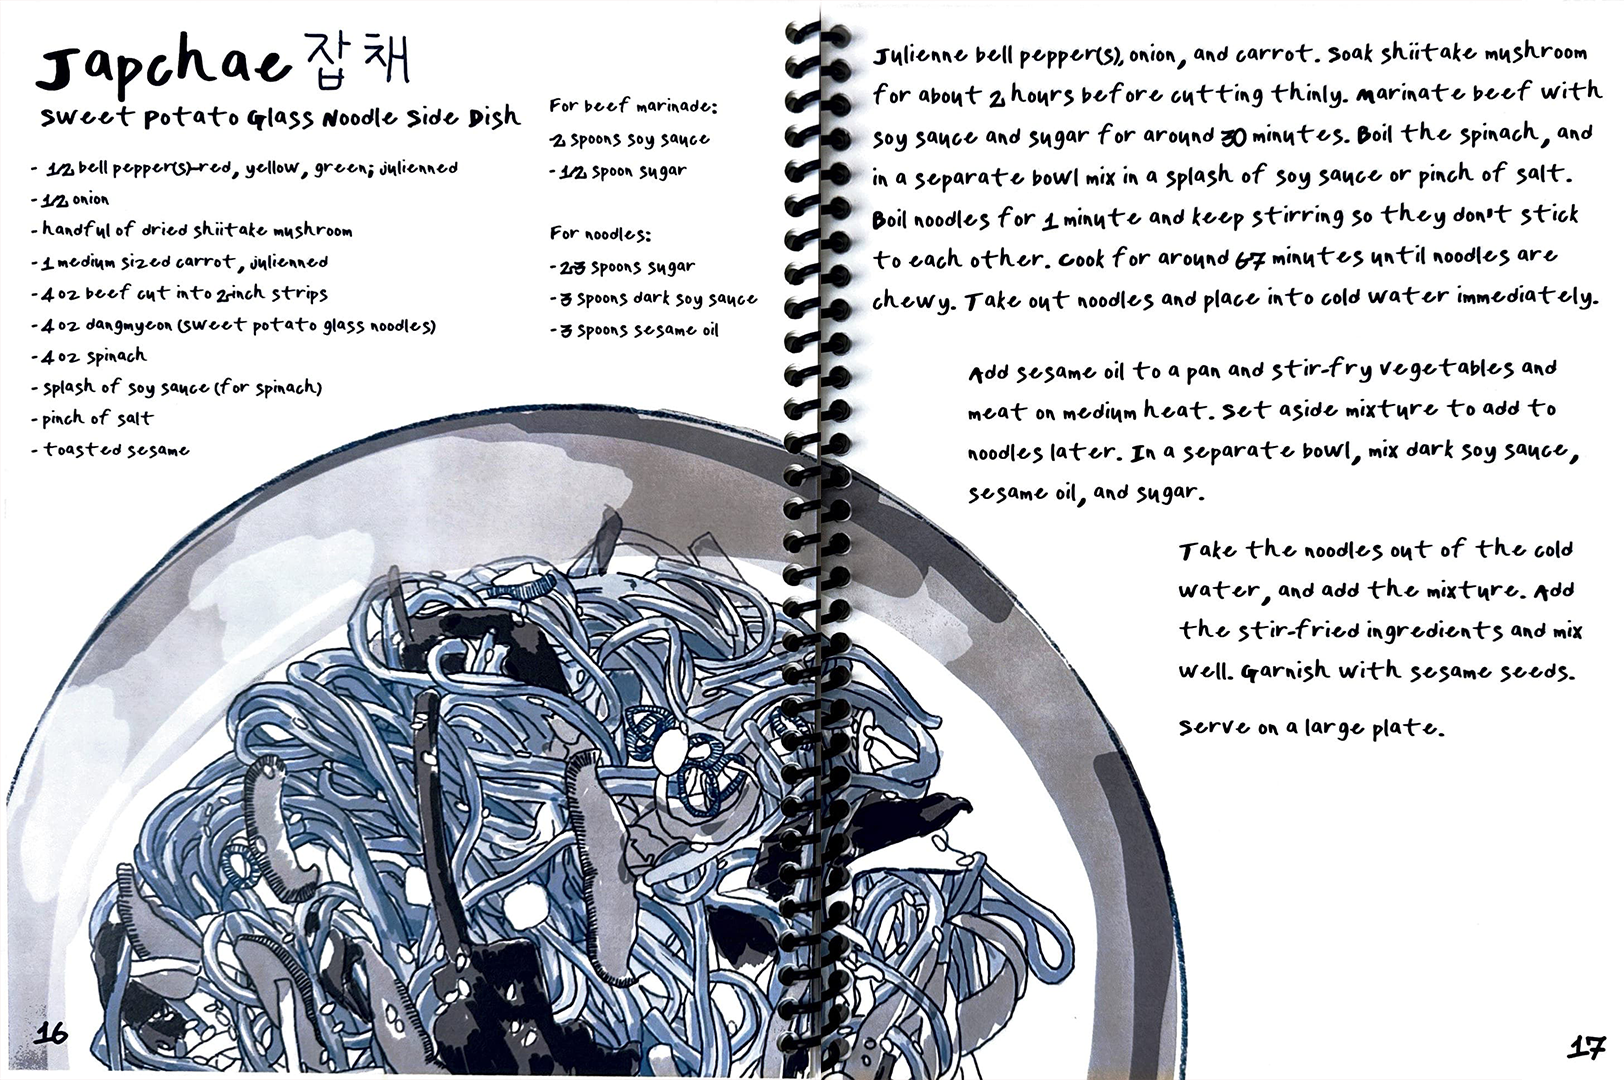 Japchae 잡채
Sweet Potato Glass Noodle Side Dish
- 1/2 bell pepper(s)-red, yellow, green; julienned
- 1/2 onion
- handful of dried shiitake mushroom
- 1 medium sized carrot, julienned
- 4 oz beef cut into 2-inch strips
- 4 oz dangmyeon (sweet potato glass noodles)
- 4 oz spinach
- splash of soy sauce (for spinach)
- pinch of salt
- toasted sesame
For beef marinade:
- 2 spoons soy sauce
- 1/2 spoon sugar
For noodles:
- 2-3 spoons sugar
- 3 spoons dark soy sauce
- 3 spoons sesame oil
16
Julienne bell pepper(s), onion, and carrot. Soak shiitake mushroom
for about 2 hours before cutting thinly. Marinate beef with
soy sauce and sugar for around 30 minutes. Boil the spinach, and
in a separate bowl mix in a splash of soy sauce or pinch of salt.
Boil noodles for 1 minute and keep stirring so they don't stick
to each other. Cook for around 6-7 minutes until noodles are
chewy. Take out noodles and place into cold water immediately.
Add sesame oil to a pan and stir-fry vegetables and
meat on medium heat. Set aside mixture to add to
noodles later. In a separate bowl, mix dark soy sauce,
sesame oil, and sugar.
Take the noodles out of the cold
water, and add the mixture. Add
the stir-fried ingredients and mix
well. Garnish with sesame seeds.
Serve on a large plate.
17